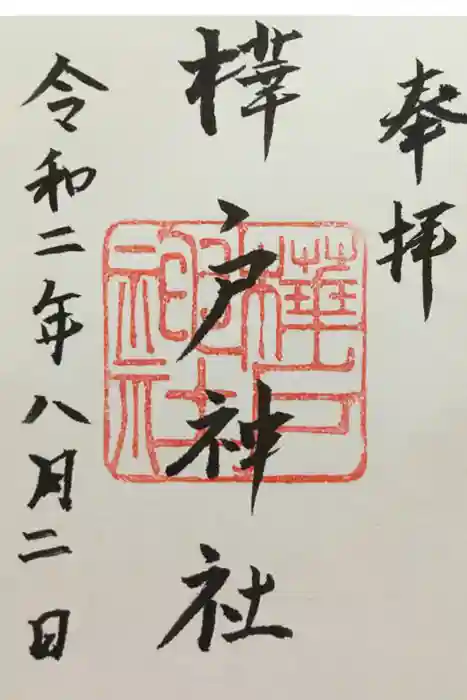 奉拝
樺戸神社
樺戸神社
令和二年八月二日